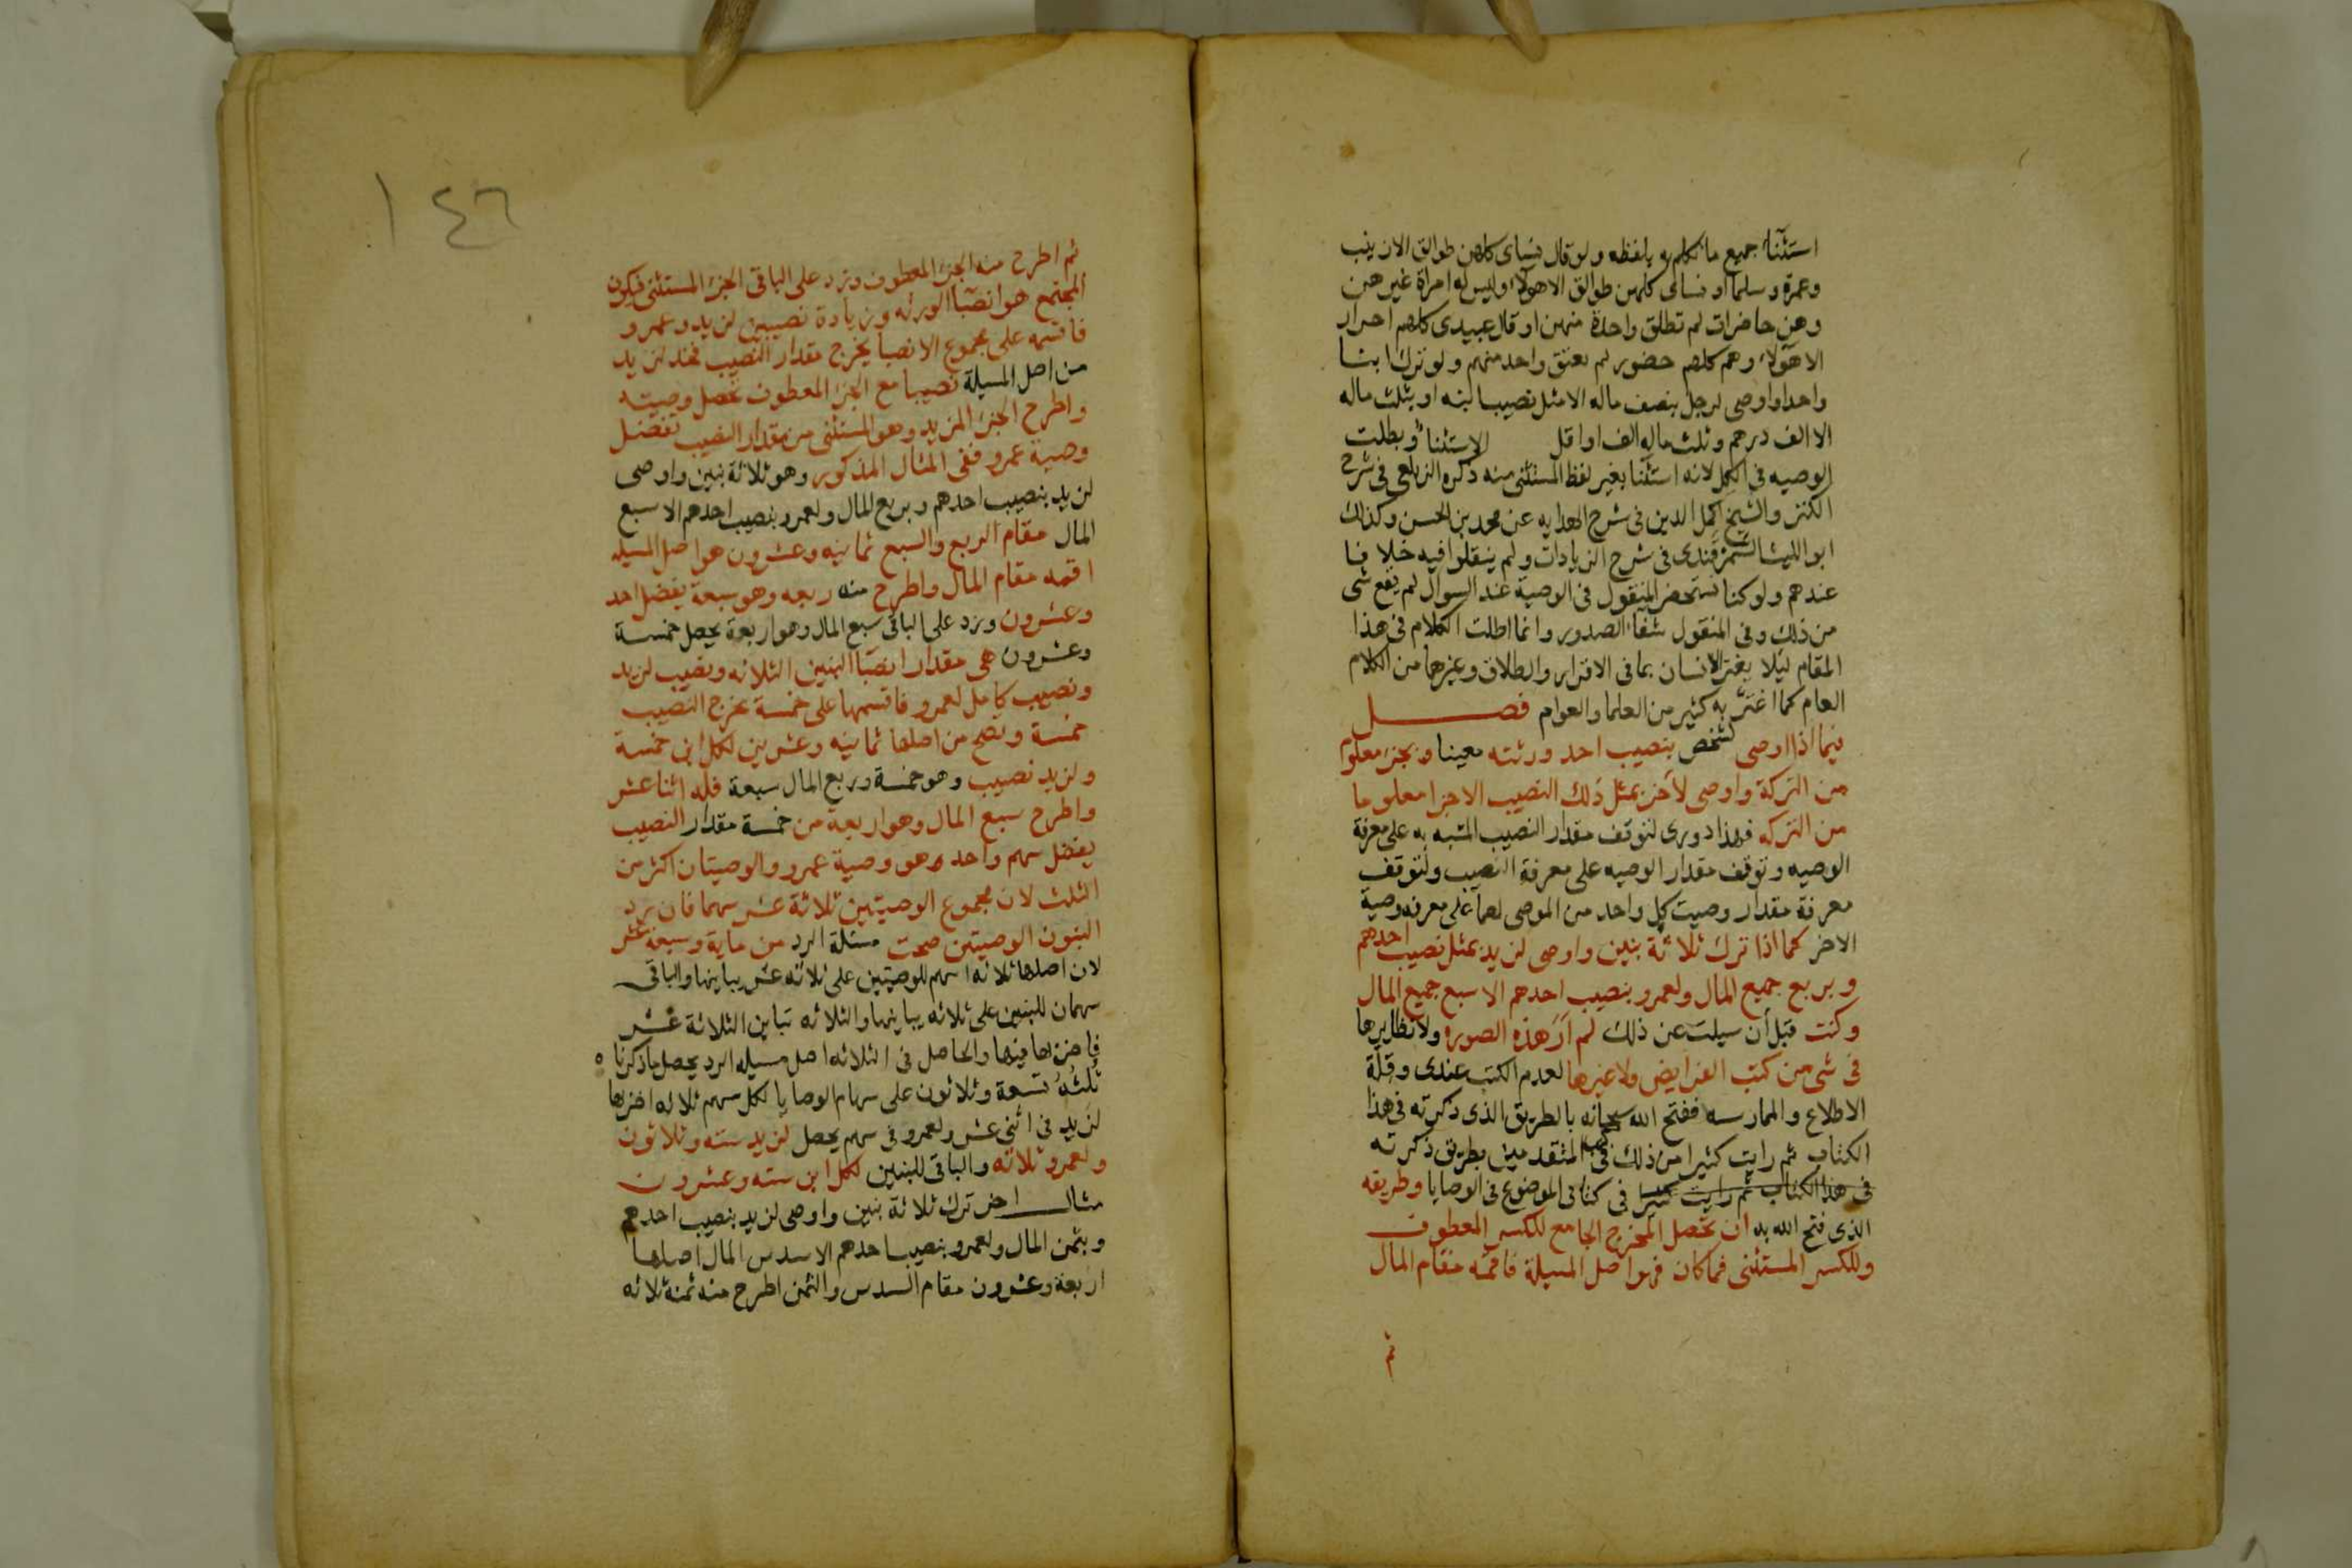 استثنا جميع ما تكلم به بلفظه ولو قال نساى كلهن طوالق الا زينب
وعمرة وسلما او نساى كلهن طوالق الا هولاء وليس له امراة غيرهن
وهن حاضرات لم تطلق واحدة منهن او قال عبيدى كلهم احرار
الا هولاء وهم كلهم حضور لم يعتق واحد منهم ولو ترك ابنا
واحدا واوصى لرجل بنصف ماله الا مثل نصيب ابنه او بثلث ماله
الا الف درهم وثلث ماله الف او اقل الاستثنا وبطلت
الوصيه فى الكل لانه استثنا بغير لفظ المستثنى منه ذكره الزيلعى فى شرح
الكنز والشيخ اكمل الدين فى شرح الهدايه عن محمد بن الحسن وكذلك
ابو الليث السمرقندى فى شرح الزيادات ولم ينقلوا فيه خلافا
عندهم ولو كنا نستحضر المنقول فى الوصية عند السوال لم يقع شى
من ذلك وفى المنقول شفاء الصدور وانما اطلت الكلام فى هذا
المقام ليلا يغتر الانسان بما فى الاقرار والطلاق وغيرها من الكلام
العام كما اغتر به كثير من العلما والعوام فصل
فيما اذا اوصى لشخص بنصيب احد ورثته معينا وبجزء معلوم
من التركة واوصى لاخر بمثل ذلك النصيب الا جزا معلوما
من التركه فهذا دورى لتوقف مقدار النصيب المشبه به على معرفة
الوصيه وتوقف مقدار الوصيه على معرفة النصيب ولتوقف
معرفة مقدار وصيت كل واحد من الموصى لهما على معرفه وصية
الاخر كما اذا ترك ثلاثة بنين واوصى لزيد بمثل نصيب احدهم
وبربع جميع المال ولعمرو بنصيب احدهم الا سبع جميع المال
وكنت قبل أن سيلت عن ذلك لم أرَ هذه الصوره ولا نظايرها
فى شى من كتب الفرايض ولا غيرها لعدم الكتب عندى وقلة
الاطلاع والممارسه ففتح الله سبحانه بالطريق الذى ذكرته فى هذا
الكتاب ثم رايت كثيرا من ذلك فى كتب المتقدمين بطريق ذكرته
فى هذا الكتاب ثم رايت كثيرا فى كتابى الموضوع فى الوصايا وطريقه
الذى فتح الله به ان تحصل المخرج الجامع للكسر المعطوف
وللكسر المستثنى فما كان فهو اصل المسيلة فاقمه مقام المال
ثم
١٤٦
ثم اطرح منه الجزء المعطوف وزد على الباقى الجزء المستثنى فيكون
المجتمع هو انصبا الورثه وزيادة نصيبين لزيد وعمرو
فاقسمه على مجموع الانصبا يخرج مقدار النصيب فخذ لزيد
من اصل المسيلة نصيبا مع الجزء المعطوف تحصل وصيته
واطرح الجزء المزيد وهو المستثنى من مقدار النصيب تفضل
وصية عمرو ففى المثال المذكور وهو ثلاثة بنين واوصى
لزيد بنصيب احدهم وبربع المال ولعمرو بنصيب احدهم الا سبع
المال مقام الربع والسبع ثمانيه وعشرون هو اصل المسيله
اقمه مقام المال واطرح منه ربعه وهو سبعة يفضل احد
وعشرون وزد على الباقى سبع المال وهو اربعة يحصل خمسة
وعشرون هى مقدار انصبا البنين الثلاثه ونصيب لزيد
ونصيب كامل لعمرو فاقسمها على خمسة يخرج النصيب
خمسة وتصح من اصلها ثمانيه وعشرين لكل ابن خمسة
ولزيد نصيب وهو خمسة وربع المال سبعة فله اثنا عشر
واطرح سبع المال وهو اربعة من خمسة مقدار النصيب
يفضل سهم واحد وهو وصية عمرو والوصيتان اكثر من
الثلث لان مجموع الوصيتين ثلاثة عشر سهما فان يرد
البنون الوصيتين صحت مسئلة الرد من ماية وسبعة عشر
لان اصلها ثلاثه اسهم للوصيتين على ثلاثه عشر يباينها والباقى
سهمان للبنين على ثلاثه يباينها والثلاثه تباين الثلاثة عشر
فاضربها فيها والحاصل فى الثلاثه اصل مسيله الرد يحصل ما ذكرنا ه
ثلثه تسعة وثلاثون على سهام الوصايا لكل سهم ثلاثه اضربها
لزيد فى اثنى عشر ولعمرو فى سهم يحصل لزيد سته وثلاثون
ولعمرو ثلاثه والباقى للبنين لكل ابن سته وعشرون
مثال اخر ترك ثلاثة بنين واوصى لزيد بنصيب احدهم
وبثمن المال ولعمرو بنصيب احدهم الا سدس المال اصلها
اربعة وعشرون مقام السدس والثمن اطرح منه ثمنه ثلاثه